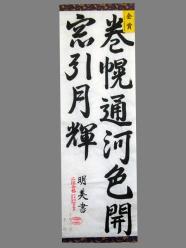 金賞
巻幌通河色開
窓引月輝
明美書